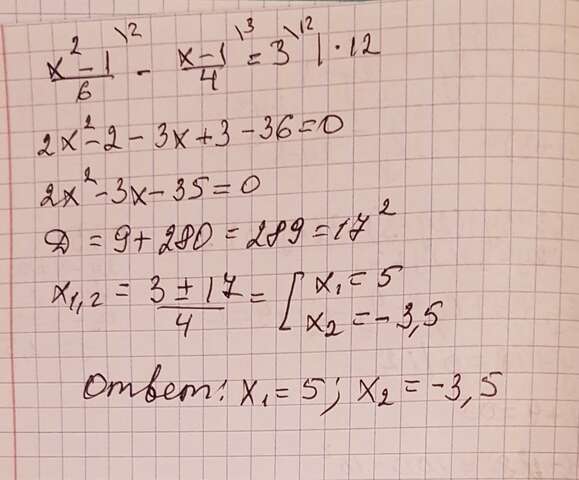 (x² - 1)/6 \2 - (x - 1)/4 \3 = 3 \12 | · 12
2x² - 2 - 3x + 3 - 36 = 0
2x² - 3x - 35 = 0
D = 9 + 280 = 289 = 17²
x₁,₂ = (3 ± 17)/4 = [ x₁ = 5
x₂ = -3,5
Ответ: x₁ = 5; x₂ = -3,5